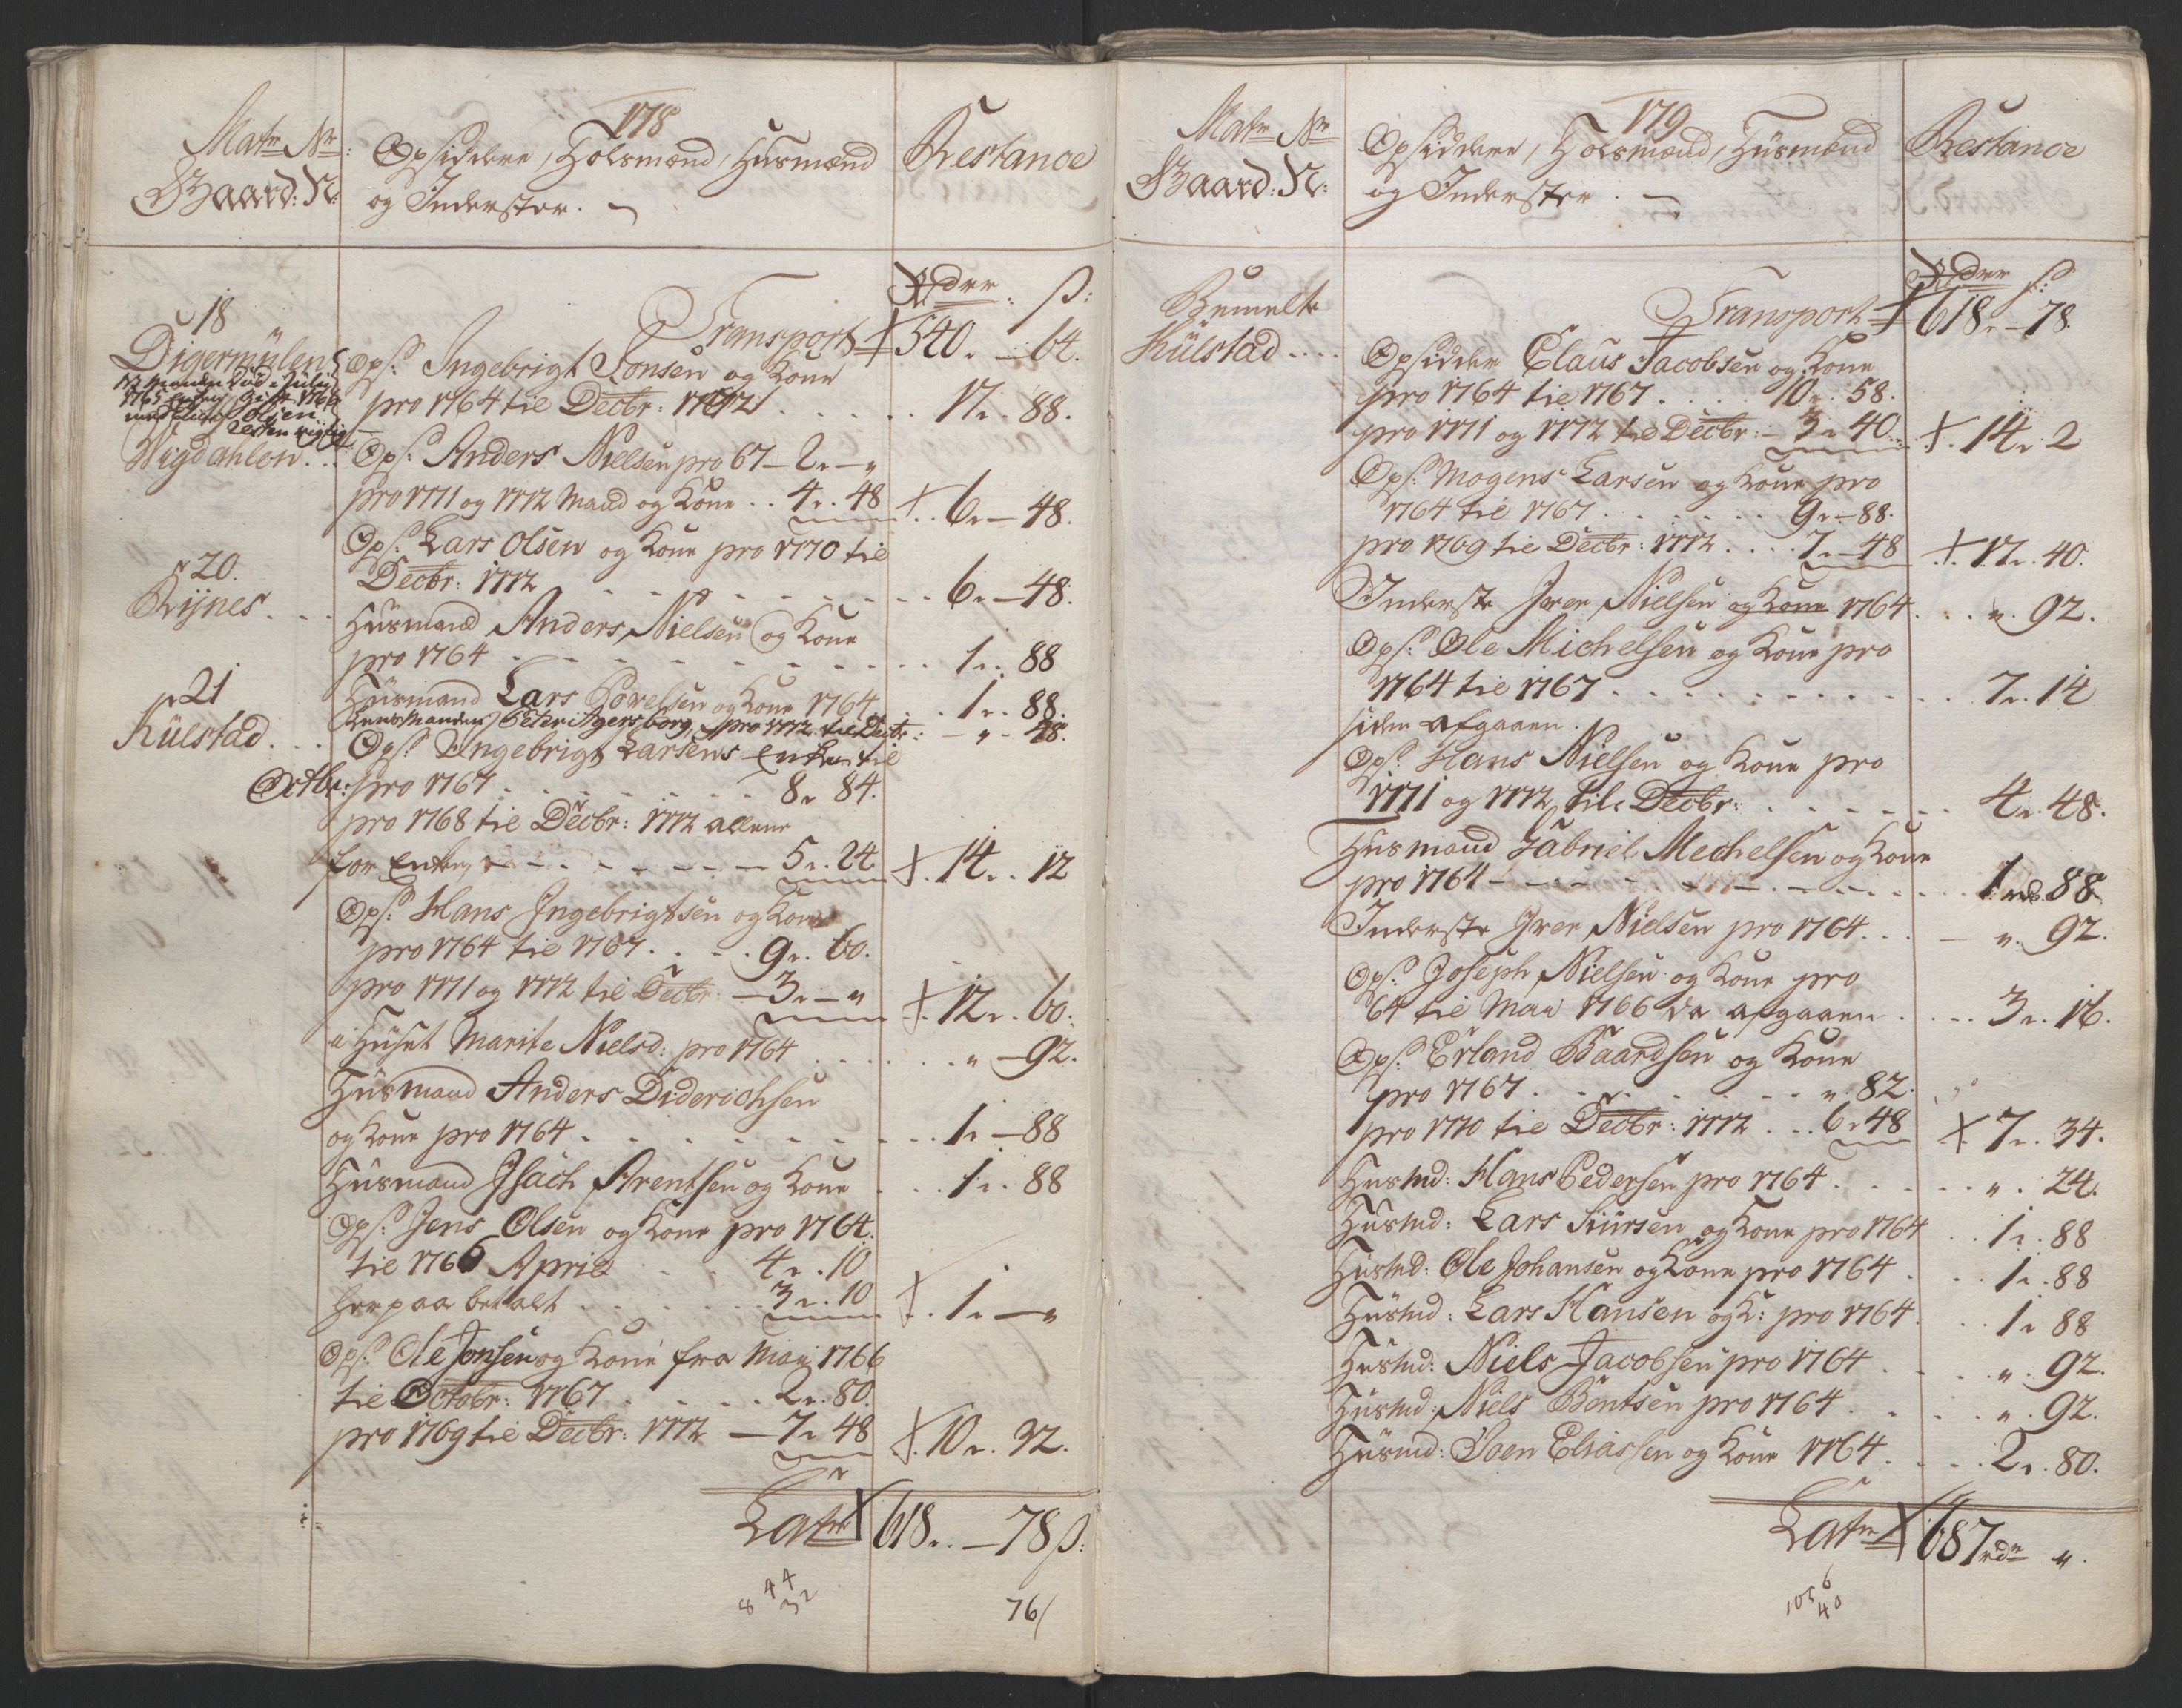 178
Matr Nr:
Gaard: N:
Opsiddere, Holsmænd, Husmænd
og Inderster.
Restance
Rdr ß:
Transport 540. – 64.
18
Digermülen
Ops: Ingebrigt Jonsen og Kone
1765
Olsen
pro 1764 til Decbr: 1772 . . . . . 17. 88.
Wigdahlen . .
Ops: Anders Nielsen pro 67 – 2. – "
pro 1771 og 1772 Mand og Kone . . 4. 48 6. – 48.
Ops: Lars Olsen og Kone pro 1770 til
Decbr: 1772 . . . . . 6. – 48.
20.
Rijnes . . .
Husmand Anders Nielsen og Kone
pro 1764 . . . . . 1. 88
21
Külstad . . .
Husmand Lars Powelsen og Kone 1764 . . 1. 88.
Peter Agersborg, pro 1772 til Decbr: – " – 48.
Ops: Ingebrigt Larsens Enke til
Octbr: pro 1767 . . . . . 8. 84.
pro 1768 til Decbr: 1772 allene
for Enken . . . . . 5. 24. 14. . 12
Ops: Hans Ingebrigtsen og Kone
pro 1764 til 1767 . . . . 9. 60.
pro 1771 og 1772 til Decbr: – 3. – " 12. . 60.
i Huset Marite Nielsd: pro 1764 . . . . " – 92.
Husmand Anders Diderichsen
og Kone pro 1764 . . . . . 1. – 88
Husmand Isach Arentsen og Kone . . . 1. . 88
Ops: Jens Olsen og Kone pro 1764.
til 1766 April . . . 4. . 10
herpaa betalt . . . . . 3. . 10 1. – "
Ops: Ole Jonsen og Kone fra Maii 1766
til Octobr: 1767 . . . . . 2. 80.
pro 1769 til Decbr: 1772 – 7. 48 10. . 32.
Latr 618. . – 78 ß:
8 44
32
76/
179
Matr Nr
Gaard: N:
Opsiddere, Holsmænd, Husmænd
og Inderster.
Restance
Rdr ß:
Bemelte
Külstad . . . .
Transport 618. – 78.
Opsidder Claus Jacobsen og Kone
pro 1764 til 1767 . . . . 10. 58.
pro 1771 og 1772 til Decbr: – 3. 40. 14. 2
Ops: Mogens Larsen og Kone pro
1764 til 1767 . . . . . 9. – 88.
pro 1769 til Decbr: 1772 . . . . 7. – 48 17. . 40.
Inderste Iver Nielsen og Kone 1764 . . . ". 92.
Ops: Ole Michelsen og Kone pro
1764 til 1767 . . . . . 7. 14
siden afgaaen.
Ops: Hans Nielsen og Kone pro
1771 og 1772, til Decbr: . . . . . 4. 48.
Husmand Gabriel Mechelsen og Kone
pro 1764 – – – – – . . . 1 rd 88
Inderste Iver Nielsen pro 1764 . . . – ". 92.
Ops: Joseph Nielsen og Kone pro
64 til Maii 1766 da afgaaen . . . . 3. . 16.
Ops: Erland Baardsen og Kone
pro 1767 . . . . . ". 82.
pro 1770 til Decbr: 1772 . . . 6. 48 7. . 34.
Husmd: Hans Pedersen pro 1764 . . . . . ". 24.
Husmd: Lars Siursen og Kone pro 1764 . . 1. . 88
Husmd: Ole Johansen og Kone pro 1764 . . . 1. . 88
Husmd: Lars Hansen og K: pro 1764 . . . 1. 88
Husmd: Niels Jacobsen pro 1764 . . . . ". 92.
Husmd: Niels Bentsen pro 1764 . . . . . ". 92.
Husmd: Soen Eliassen og Kone 1764 . . . . 2. . 80.
Latr 687 rdr ".
6
105
40